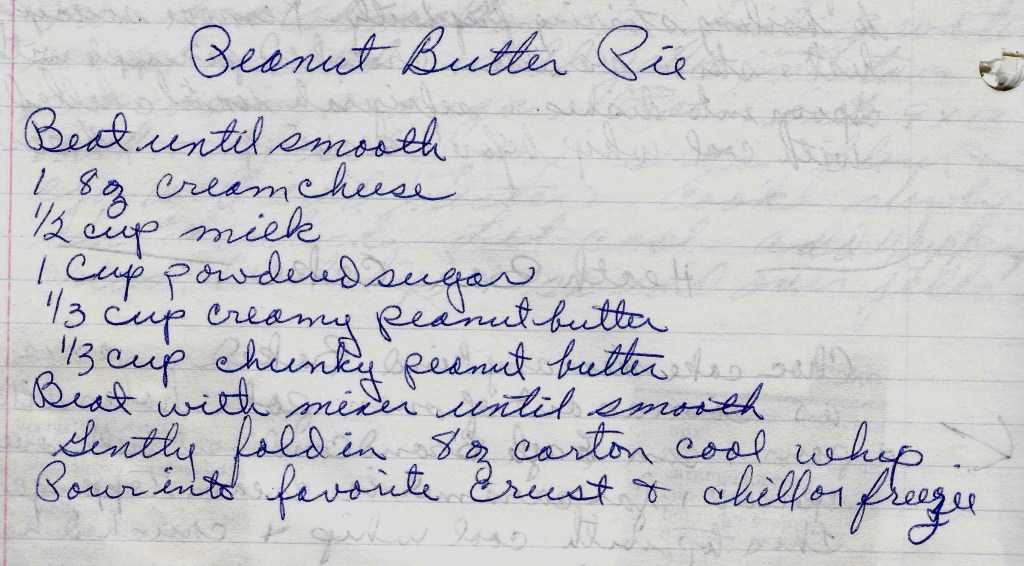 Peanut Butter Pie
Beat until smooth
1 8oz cream cheese
1/2 cup milk
1 Cup powdered sugar
1/3 cup creamy peanut butter
1/3 cup chunky peanut butter
Beat with mixer until smooth
Gently fold in 8oz carton cool whip.
Pour into favorite crust & chill or freeze